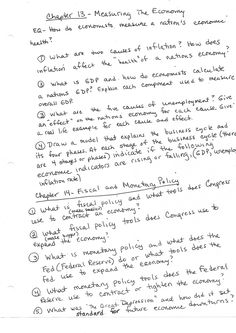 Chapter 13 - Measuring The Economy
EQ - How do economists measure a nation's economic
health?
① What are two causes of inflation? How does
inflation affect the "health" of a nation's economy?
② What is GDP and how do economists calculate
a nation's GDP? Explain each component used to measure
overall GDP.
③ What are the five causes of unemployment? Give
an effect on the nation's economy for each cause. Give
a real life example for each cause and effect.
④ Draw a model that explains the business cycle and
its four phases. At each stage of the business cycle (there
are 4 stages or phases) indicate if the following
economic indicators are rising or falling; (GDP, unemploy
inflation rate)
Chapter 14 - Fiscal and Monetary Policy
① What is fiscal policy and what tools does Congress
use to contract an economy?
② What fiscal policy tools does Congress use to
expand the economy?
③ What is monetary policy and what does the
Fed (Federal Reserve) do or what tools does the
Fed use to expand the economy?
④ What monetary policy tools does the Federal
Reserve use to contract or tighten the economy?
⑤ What was "The Great Depression" and how did it set
standard for future economic downturns?